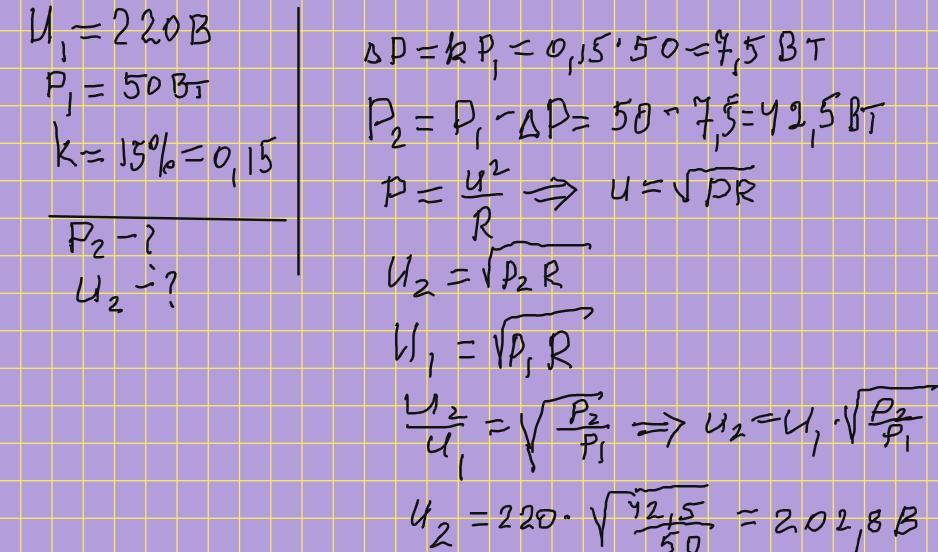 U₁ = 220 В
P₁ = 50 Вт
k = 15% = 0,15
P₂ - ?
U₂ - ?
ΔP = kP₁ = 0,15 · 50 = 7,5 Вт
P₂ = P₁ - ΔP = 50 - 7,5 = 42,5 Вт
P = U²/R ⇒ U = √(PR)
U₂ = √(P₂ R)
U₁ = √(P₁ R)
U₂/U₁ = √(P₂/P₁) ⇒ U₂ = U₁ · √(P₂/P₁)
U₂ = 220 · √(42,5/50) = 202,8 В